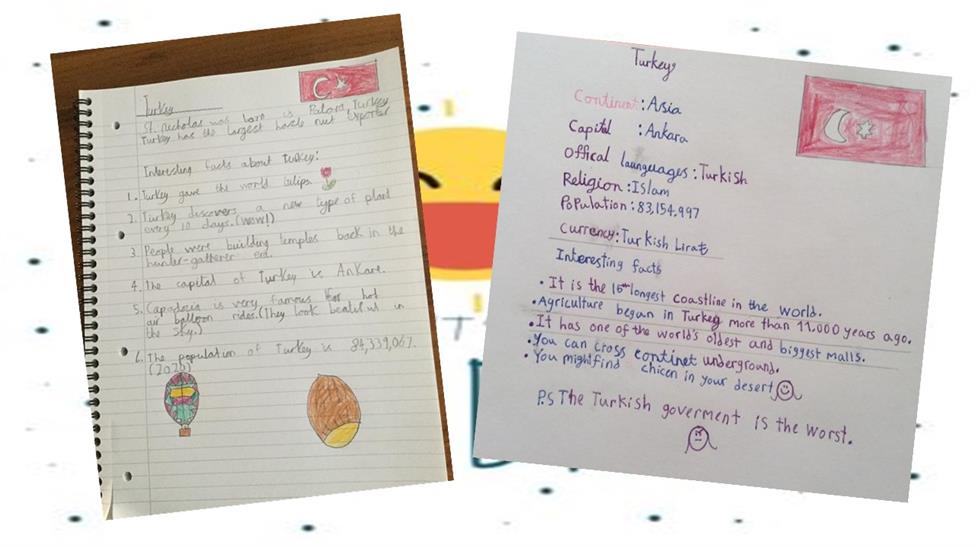 Turkey
St. Nicholas was born is Patara, Turkey
Turkey has the largest hazle nut Exporter
Interesting facts about Turkey:
1. Turkey gave the world tulips.
2. Turkey discovers a new type of plant
every 10 days. (wow!)
3. People were building temples back in the
hunter-gatherer era.
4. The capital of Turkey is Ankare.
5. Capadocia is very famous for hot
air balloon rides. (They look beatiful in
the sky.)
6. The population of Turkey is 84,339,067.
(2020)
Turkey
Continent: Asia
Capitel : Ankara
Offical launguages : Turkish
Religion : Islam
Population : 83,154,997
currency: Turkish Lirat
Interesting facts
• It is the 16th longest coastline in the world.
• Agriculture begun in Turkey more than 11.000 years ago.
• It has one of the world's oldest and biggest malls.
• You can cross continet underground.
• You might find chicen in your desert
P.s The Turkish goverment is the worst.